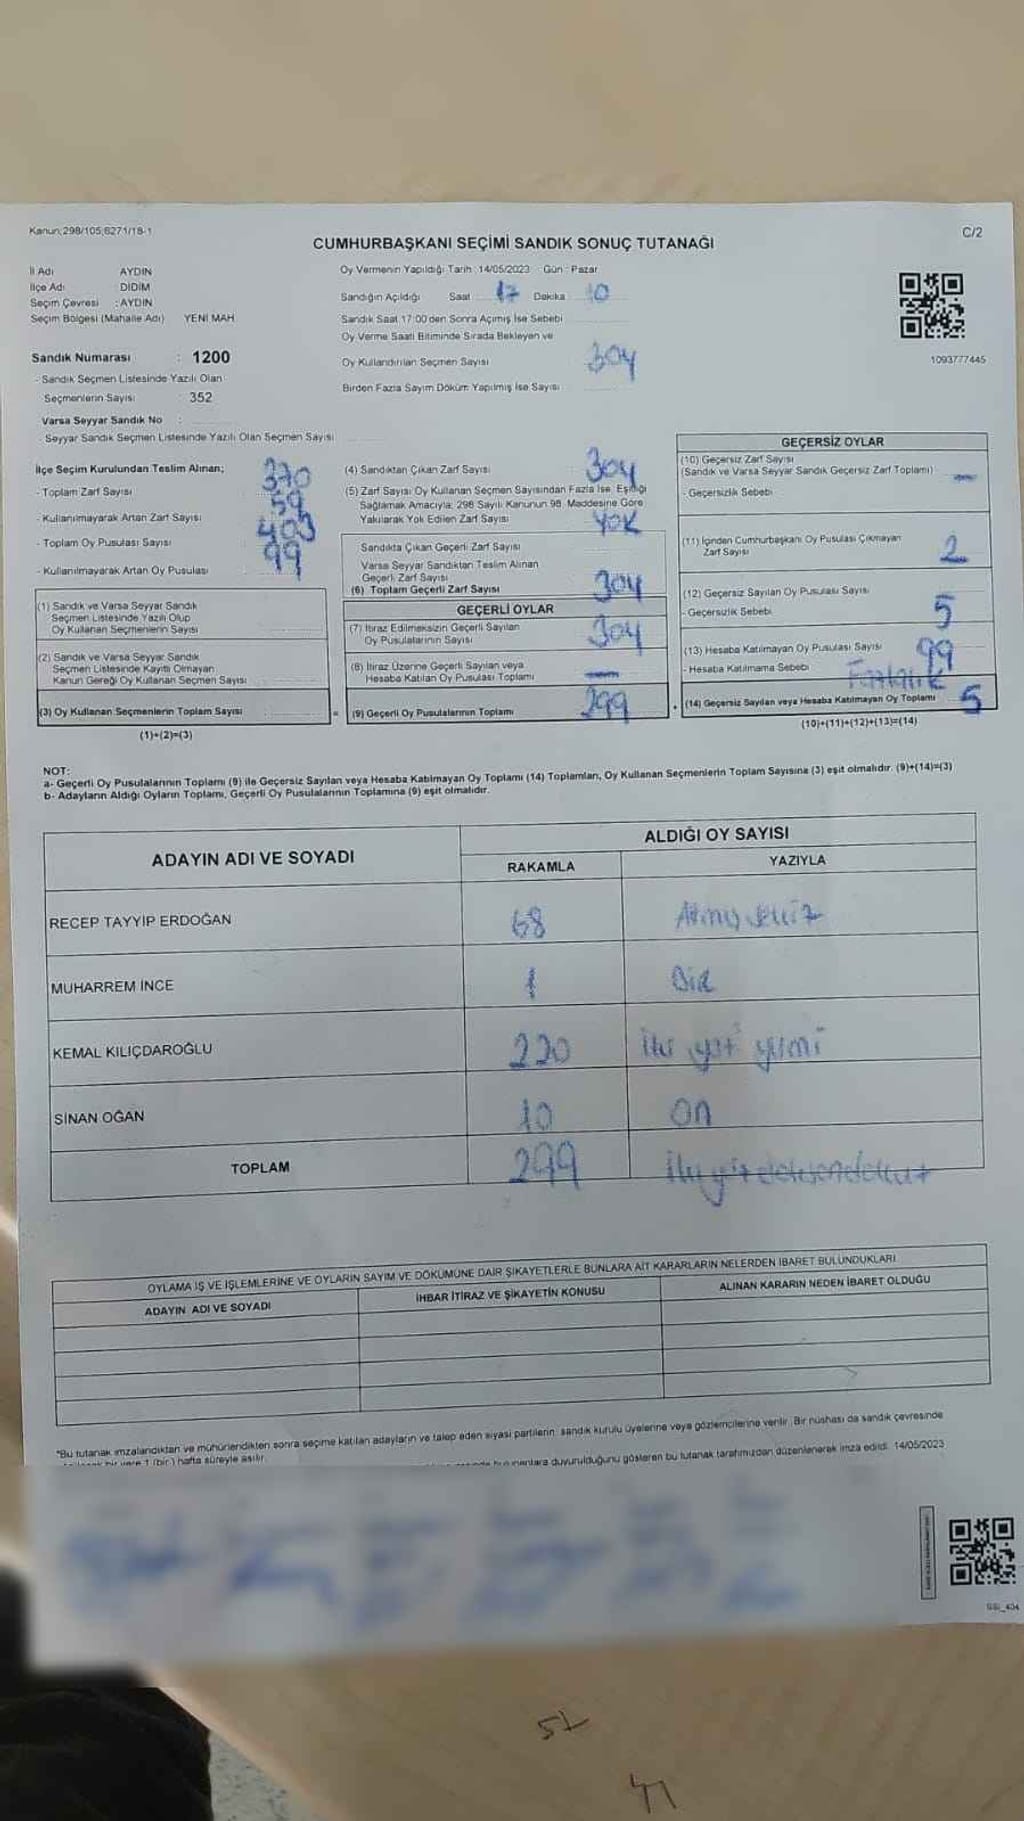 Kanun;298/105;6271/18-1
C/2
CUMHURBAŞKANI SEÇİMİ SANDIK SONUÇ TUTANAĞI
İl Adı AYDIN
İlçe Adı DİDİM
Seçim Çevresi : AYDIN
Seçim Bölgesi (Mahalle Adı) YENİ MAH
Sandık Numarası : 1200
- Sandık Seçmen Listesinde Yazılı Olan
Seçmenlerin Sayısı 352
Varsa Seyyar Sandık No :
Seyyar Sandık Seçmen Listesinde Yazılı Olan Seçmen Sayısı
Oy Vermenin Yapıldığı Tarih : 14/05/2023 Gün : Pazar
Sandığın Açıldığı Saat 17 Dakika 10
Sandık Saat 17:00'den Sonra Açımış İse Sebebi
Oy Verme Saati Bitiminde Sırada Bekleyen ve
Oy Kullandırılan Seçmen Sayısı 304
Birden Fazla Sayım Döküm Yapılmış İse Sayısı
1093777445
İlçe Seçim Kurulundan Teslim Alınan;
- Toplam Zarf Sayısı 370
- Kullanılmayarak Artan Zarf Sayısı 59
- Toplam Oy Pusulası Sayısı 403
- Kullanılmayarak Artan Oy Pusulası 99
(1) Sandık ve Varsa Seyyar Sandık
Seçmen Listesinde Yazılı Olup
Oy Kullanan Seçmenlerin Sayısı
(2) Sandık ve Varsa Seyyar Sandık
Seçmen Listesinde Kayıtlı Olmayan
Kanun Gereği Oy Kullanan Seçmen Sayısı
(3) Oy Kullanan Seçmenlerin Toplam Sayısı
(1)+(2)=(3)
(4) Sandıktan Çıkan Zarf Sayısı 304
(5) Zarf Sayısı Oy Kullanan Seçmen Sayısından Fazla İse, Eşitliği
Sağlamak Amacıyla; 298 Sayılı Kanunun 98. Maddesine Göre
Yakılarak Yok Edilen Zarf Sayısı YOK
Sandıkta Çıkan Geçerli Zarf Sayısı
Varsa Seyyar Sandıktan Teslim Alınan
Geçerli Zarf Sayısı
(6) Toplam Geçerli Zarf Sayısı 304
GEÇERLİ OYLAR
(7) İtiraz Edilmeksizin Geçerli Sayılan
Oy Pusulalarının Sayısı 304
(8) İtiraz Üzerine Geçerli Sayılan veya
Hesaba Katılan Oy Pusulası Toplamı —
= (9) Geçerli Oy Pusulalarının Toplamı 299
GEÇERSİZ OYLAR
(10) Geçersiz Zarf Sayısı
(Sandık ve Varsa Seyyar Sandık Geçersiz Zarf Toplamı) —
- Geçersizlik Sebebi
(11) İçinden Cumhurbaşkanı Oy Pusulası Çıkmayan
Zarf Sayısı 2
(12) Geçersiz Sayılan Oy Pusulası Sayısı
- Geçersizlik Sebebi 5
(13) Hesaba Katılmayan Oy Pusulası Sayısı 99
- Hesaba Katılmama Sebebi Fazlalık
+ (14) Geçersiz Sayılan veya Hesaba Katılmayan Oy Toplamı 5
(10)+(11)+(12)+(13)=(14)
NOT:
a- Geçerli Oy Pusulalarının Toplamı (9) ile Geçersiz Sayılan veya Hesaba Katılmayan Oy Toplamı (14) Toplamları, Oy Kullanan Seçmenlerin Toplam Sayısına (3) eşit olmalıdır. (9)+(14)=(3)
b- Adayların Aldığı Oyların Toplamı, Geçerli Oy Pusulalarının Toplamına (9) eşit olmalıdır.
ADAYIN ADI VE SOYADI ALDIĞI OY SAYISI
RAKAMLA YAZIYLA
RECEP TAYYİP ERDOĞAN 68 Atmış sekiz
MUHARREM İNCE 1 Bir
KEMAL KILIÇDAROĞLU 220 iki yüz yirmi
SİNAN OĞAN 10 on
TOPLAM 299 iki yüz doksandokuz
OYLAMA İŞ VE İŞLEMLERİNE VE OYLARIN SAYIM VE DÖKÜMÜNE DAİR ŞİKAYETLERLE BUNLARA AİT KARARLARIN NELERDEN İBARET BULUNDUKLARI
ADAYIN ADI VE SOYADI İHBAR İTİRAZ VE ŞİKAYETİN KONUSU ALINAN KARARIN NEDEN İBARET OLDUĞU
*Bu tutanak imzalandıktan ve mühürlendikten sonra seçime katılan adayların ve talep eden siyasi partilerin, sandık kurulu üyelerine veya gözlemcilerine verilir. Bir nüshası da sandık çevresinde
bir yere 1 (bir) hafta süreyle asılır.
duyurulduğunu gösteren bu tutanak tarafımızdan düzenlenerek imza edildi. 14/05/2023
57